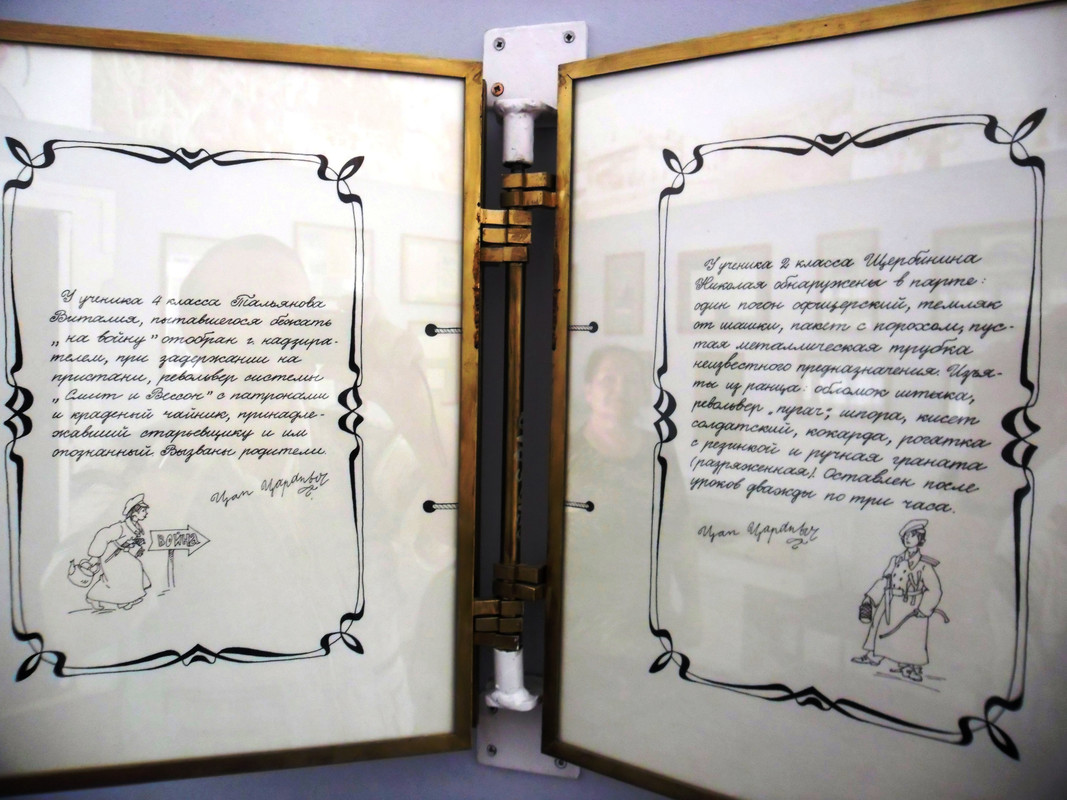 У ученика 4 класса Тальянова
Виталия, пытавшегося бежать
„на войну" отобран г. надзира-
телем, при задержании на
пристани, револьвер системы
„Смит и Вессон" с патронами
и краденый чайник, принадле-
жавший старьевщику и им
опознанный. Вызваны родители.
Цап Царапыч
ВОЙНА
У ученика 2 класса Щербинина
Николая обнаружены в парте:
один погон офицерский, темляк
от шашки, пакет с порохом, пус-
тая металлическая трубка
неизвестного предназначения. Изъя-
ты из ранца: обломок штыка,
револьвер „пугач"; шпора, кисет
солдатский, кокарда, рогатка
с резинкой и ручная граната
(разряженная). Оставлен после
уроков дважды по три часа.
Цап Царапыч